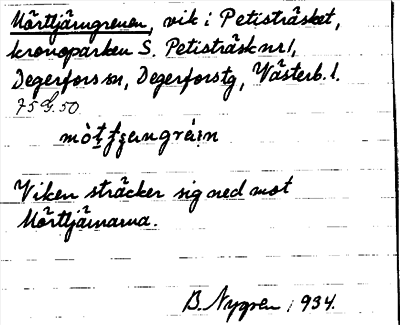 Mörttjärngrenen, vik i Petisträsket,
kronoparken S. Petisträsk nr 1,
Degerfors sn, Degerfors tg, Västerb. l.
Viken sträcker sig ned mot
Mörttjärnarna.
B. Nygren 1934.